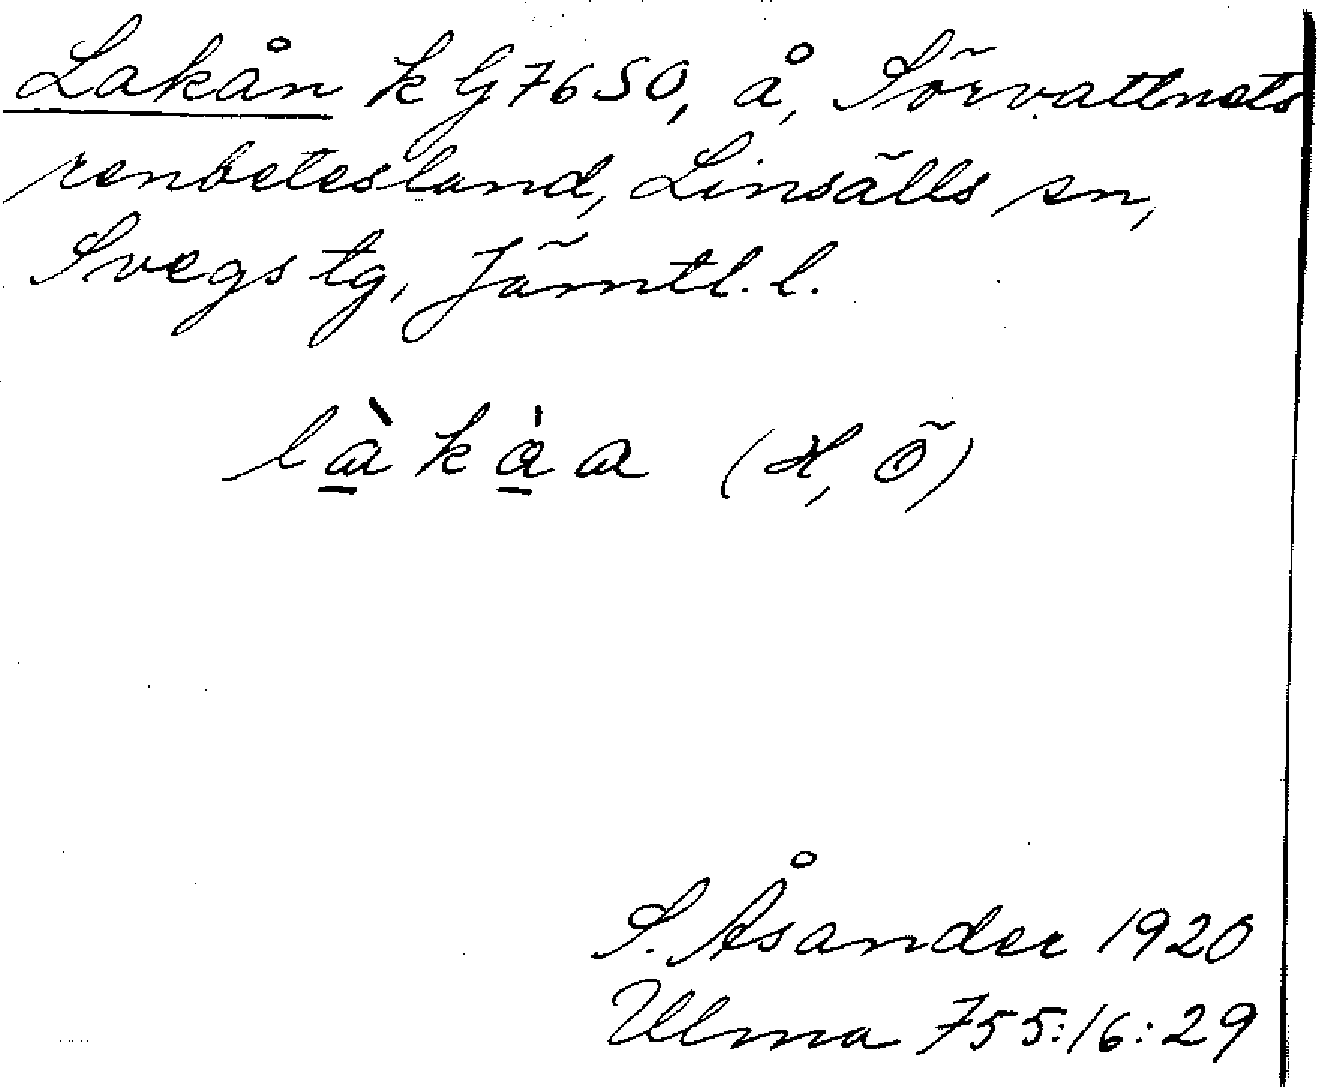 Lakån k G7650, å, Sörvattnets
renbetesland, Linsälls sn,
Svegs tg, Jämtl. l.
là̱kȧ̱a (H, Ö)
S. Åsander 1920
Ulma 755:16:29